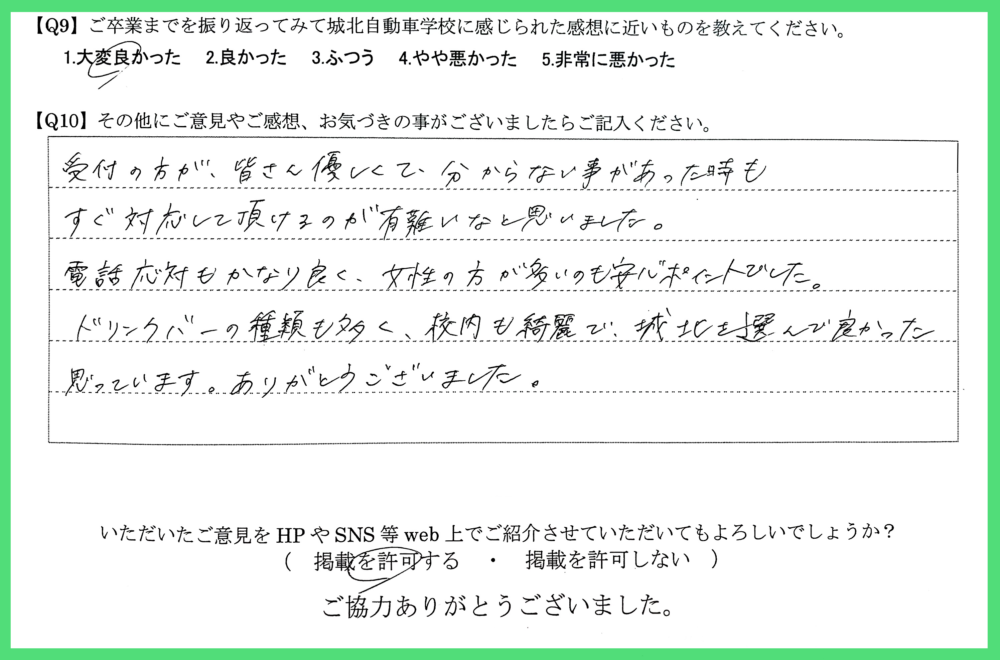 【Q9】ご卒業までを振り返ってみて城北自動車学校に感じられた感想に近いものを教えてください。
1.大変良かった 2.良かった 3.ふつう 4.やや悪かった 5.非常に悪かった
【Q10】その他にご意見やご感想、お気づきの事がございましたらご記入ください。
受付の方が、皆さん優しくて、分からない事があった時も
すぐ対応して頂けるのが有難いなと思いました。
電話応対もかなり良く、女性の方が多いのも安心ポイントでした。
ドリンクバーの種類も多く、校内も綺麗で、城北を選んで良かった
思っています。ありがとうございました。
いただいたご意見をHPやSNS等web上でご紹介させていただいてもよろしいでしょうか？
（ 掲載を許可する ・ 掲載を許可しない ）
ご協力ありがとうございました。